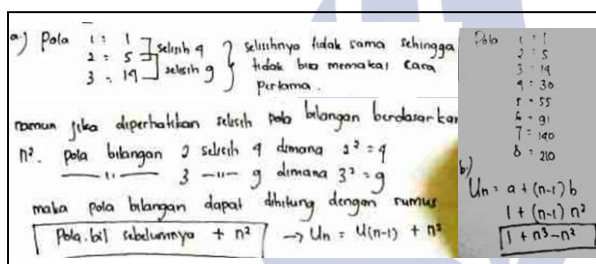 a.) Pola 1 : 1
2 = 5
3 : 14
selisih 4
selisih 9
selisihnya tidak sama sehingga
tidak bisa memakai cara
pertama.
namun jika diperhatikan selisih pola bilangan berdasarkan
n². pola bilangan 2 selisih 4 dimana 2² = 4
—— " —— 3 —"— 9 dimana 3² = 9
maka pola bilangan dapat dihitung dengan rumus
Pola.bil sebelumnya + n² → Un = U(n-1) + n²
Pola 1 : 1
2 : 5
3 : 14
4 : 30
5 : 55
6 : 91
7 : 140
8 : 210
b)
Un = a + (n-1) b
1 + (n-1) n²
1 + n³ - n²